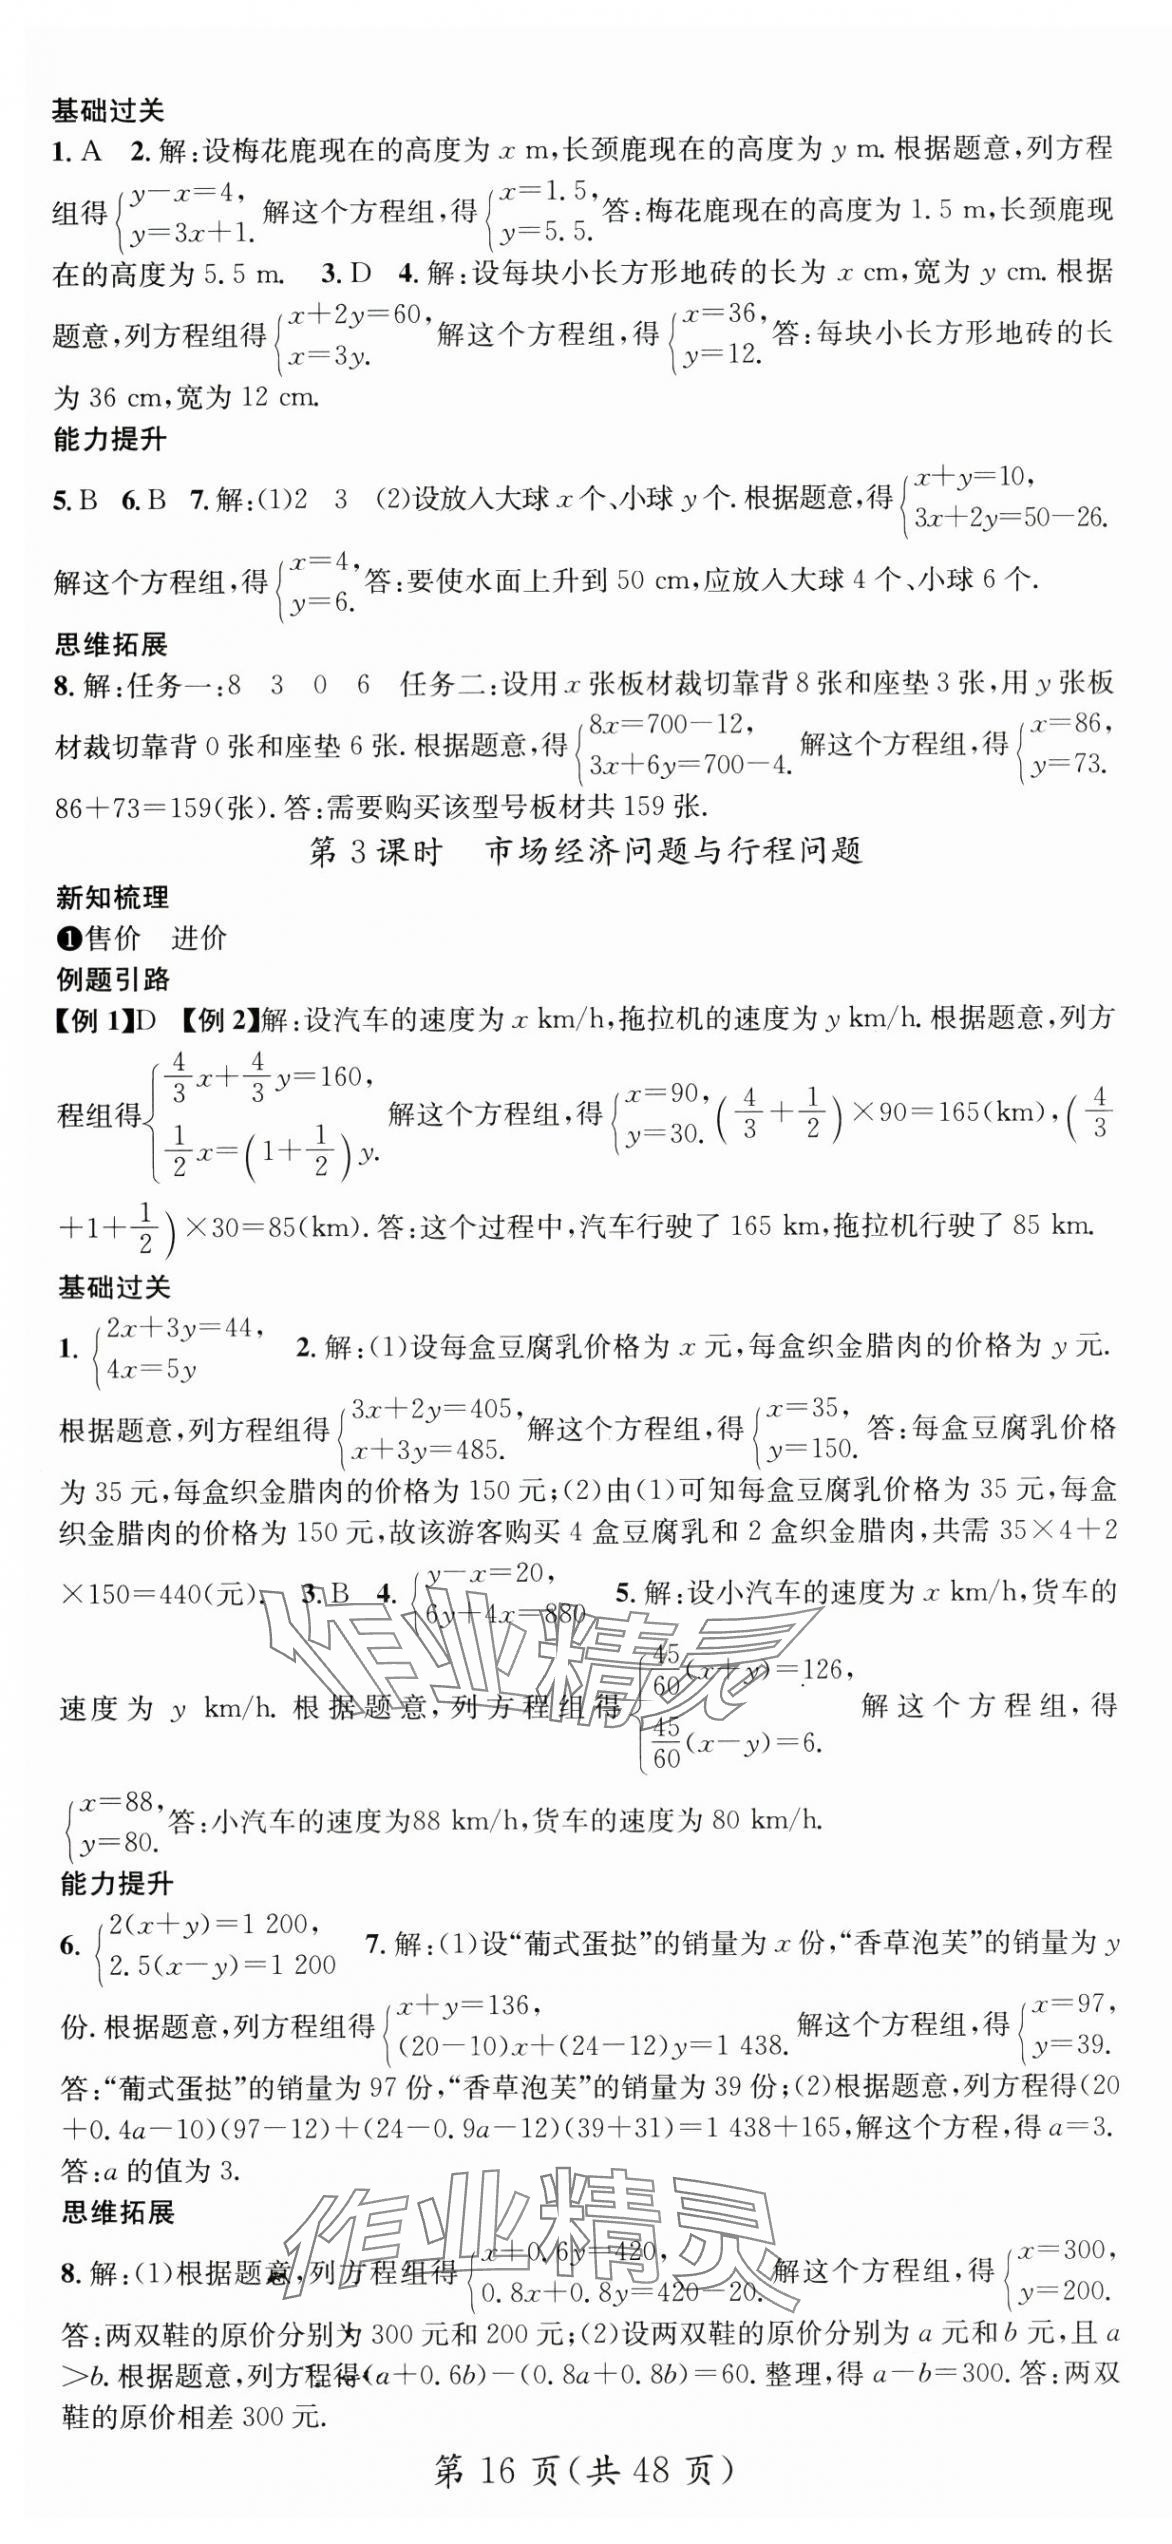 基础过关
1. A 2. 解:设梅花鹿现在的高度为 x m,长颈鹿现在的高度为 y m. 根据题意,列方程
组得{y−x=4, y=3x+1. 解这个方程组,得{x=1.5, y=5.5. 答:梅花鹿现在的高度为 1.5 m,长颈鹿现
在的高度为 5.5 m. 3. D 4. 解:设每块小长方形地砖的长为 x cm,宽为 y cm. 根据
题意,列方程组得{x+2y=60, x=3y. 解这个方程组,得{x=36, y=12. 答:每块小长方形地砖的长
为 36 cm,宽为 12 cm.
能力提升
5. B 6. B 7. 解:(1)2 3 (2)设放入大球 x 个、小球 y 个. 根据题意,得{x+y=10, 3x+2y=50−26.
解这个方程组,得{x=4, y=6. 答:要使水面上升到 50 cm,应放入大球 4 个、小球 6 个.
思维拓展
8. 解:任务一:8 3 0 6 任务二:设用 x 张板材裁切靠背 8 张和座垫 3 张,用 y 张板
材裁切靠背 0 张和座垫 6 张. 根据题意,得{8x=700−12, 3x+6y=700−4. 解这个方程组,得{x=86, y=73.
86+73=159(张). 答:需要购买该型号板材共 159 张.
第 3 课时 市场经济问题与行程问题
新知梳理
❶售价 进价
例题引路
【例 1】D 【例 2】解:设汽车的速度为 x km/h,拖拉机的速度为 y km/h. 根据题意,列方
程组得{4/3 x+4/3 y=160, 1/2 x=(1+1/2)y. 解这个方程组,得{x=90, y=30. (4/3+1/2)×90=165(km),(4/3
+1+1/2)×30=85(km). 答:这个过程中,汽车行驶了 165 km,拖拉机行驶了 85 km.
基础过关
1. {2x+3y=44, 4x=5y 2. 解:(1)设每盒豆腐乳价格为 x 元,每盒织金腊肉的价格为 y 元.
根据题意,列方程组得{3x+2y=405, x+3y=485. 解这个方程组,得{x=35, y=150. 答:每盒豆腐乳价格
为 35 元,每盒织金腊肉的价格为 150 元;(2)由(1)可知每盒豆腐乳价格为 35 元,每盒
织金腊肉的价格为 150 元,故该游客购买 4 盒豆腐乳和 2 盒织金腊肉,共需 35×4+2
×150=440(元). 3. B 4. {y−x=20, 6y+4x=880 5. 解:设小汽车的速度为 x km/h,货车的
速度为 y km/h. 根据题意,列方程组得{45/60(x+y)=126, 45/60(x−y)=6. 解这个方程组,得
{x=88, y=80. 答:小汽车的速度为88 km/h,货车的速度为 80 km/h.
能力提升
6. {2(x+y)=1 200, 2.5(x−y)=1 200 7. 解:(1)设“葡式蛋挞”的销量为 x 份,“香草泡芙”的销量为 y
份. 根据题意,列方程组得{x+y=136, (20−10)x+(24−12)y=1 438. 解这个方程组,得{x=97, y=39.
答:“葡式蛋挞”的销量为 97 份,“香草泡芙”的销量为 39 份;(2)根据题意,列方程得(20
+0.4a−10)(97−12)+(24−0.9a−12)(39+31)=1 438+165,解这个方程,得 a=3.
答:a 的值为 3.
思维拓展
8. 解:(1)根据题意,列方程组得{x+0.6y=420, 0.8x+0.8y=420−20. 解这个方程组,得{x=300, y=200.
答:两双鞋的原价分别为 300 元和 200 元;(2)设两双鞋的原价分别为 a 元和 b 元,且 a
>b. 根据题意,列方程得(a+0.6b)−(0.8a+0.8b)=60. 整理,得 a−b=300. 答:两双
鞋的原价相差 300 元.
第 16 页(共 48 页)
作业精灵
作业精灵